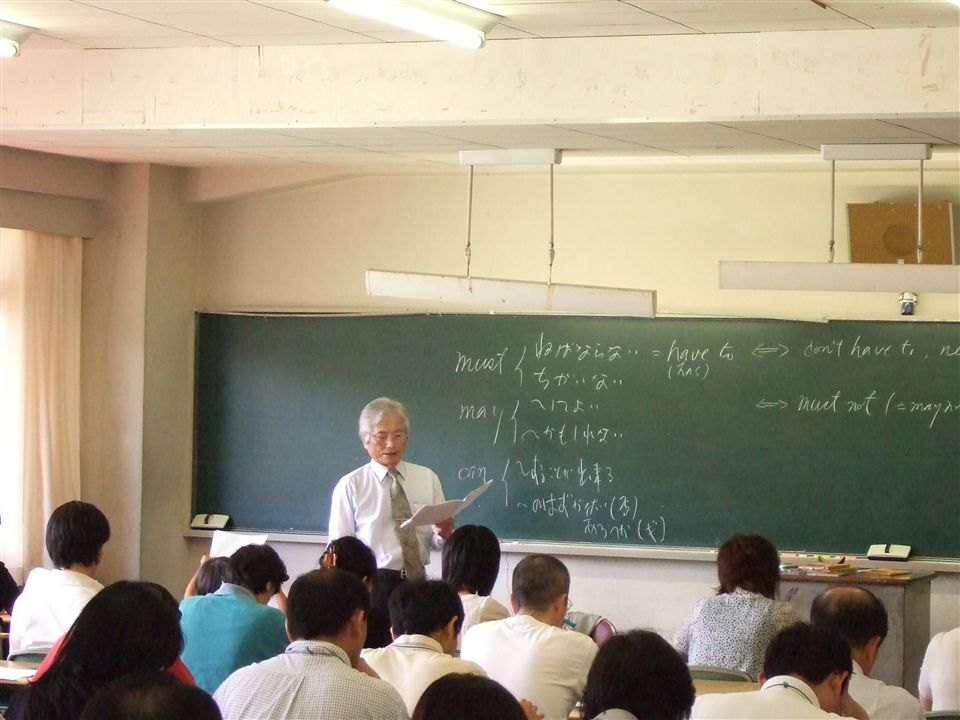 must ねばならない = have to ⇔ don't have to,
(has)
ちがいない
may 〜てよい ⇔ must not (= may n
〜かもしれない
can 〜することが出来る
〜のはずがない (否)